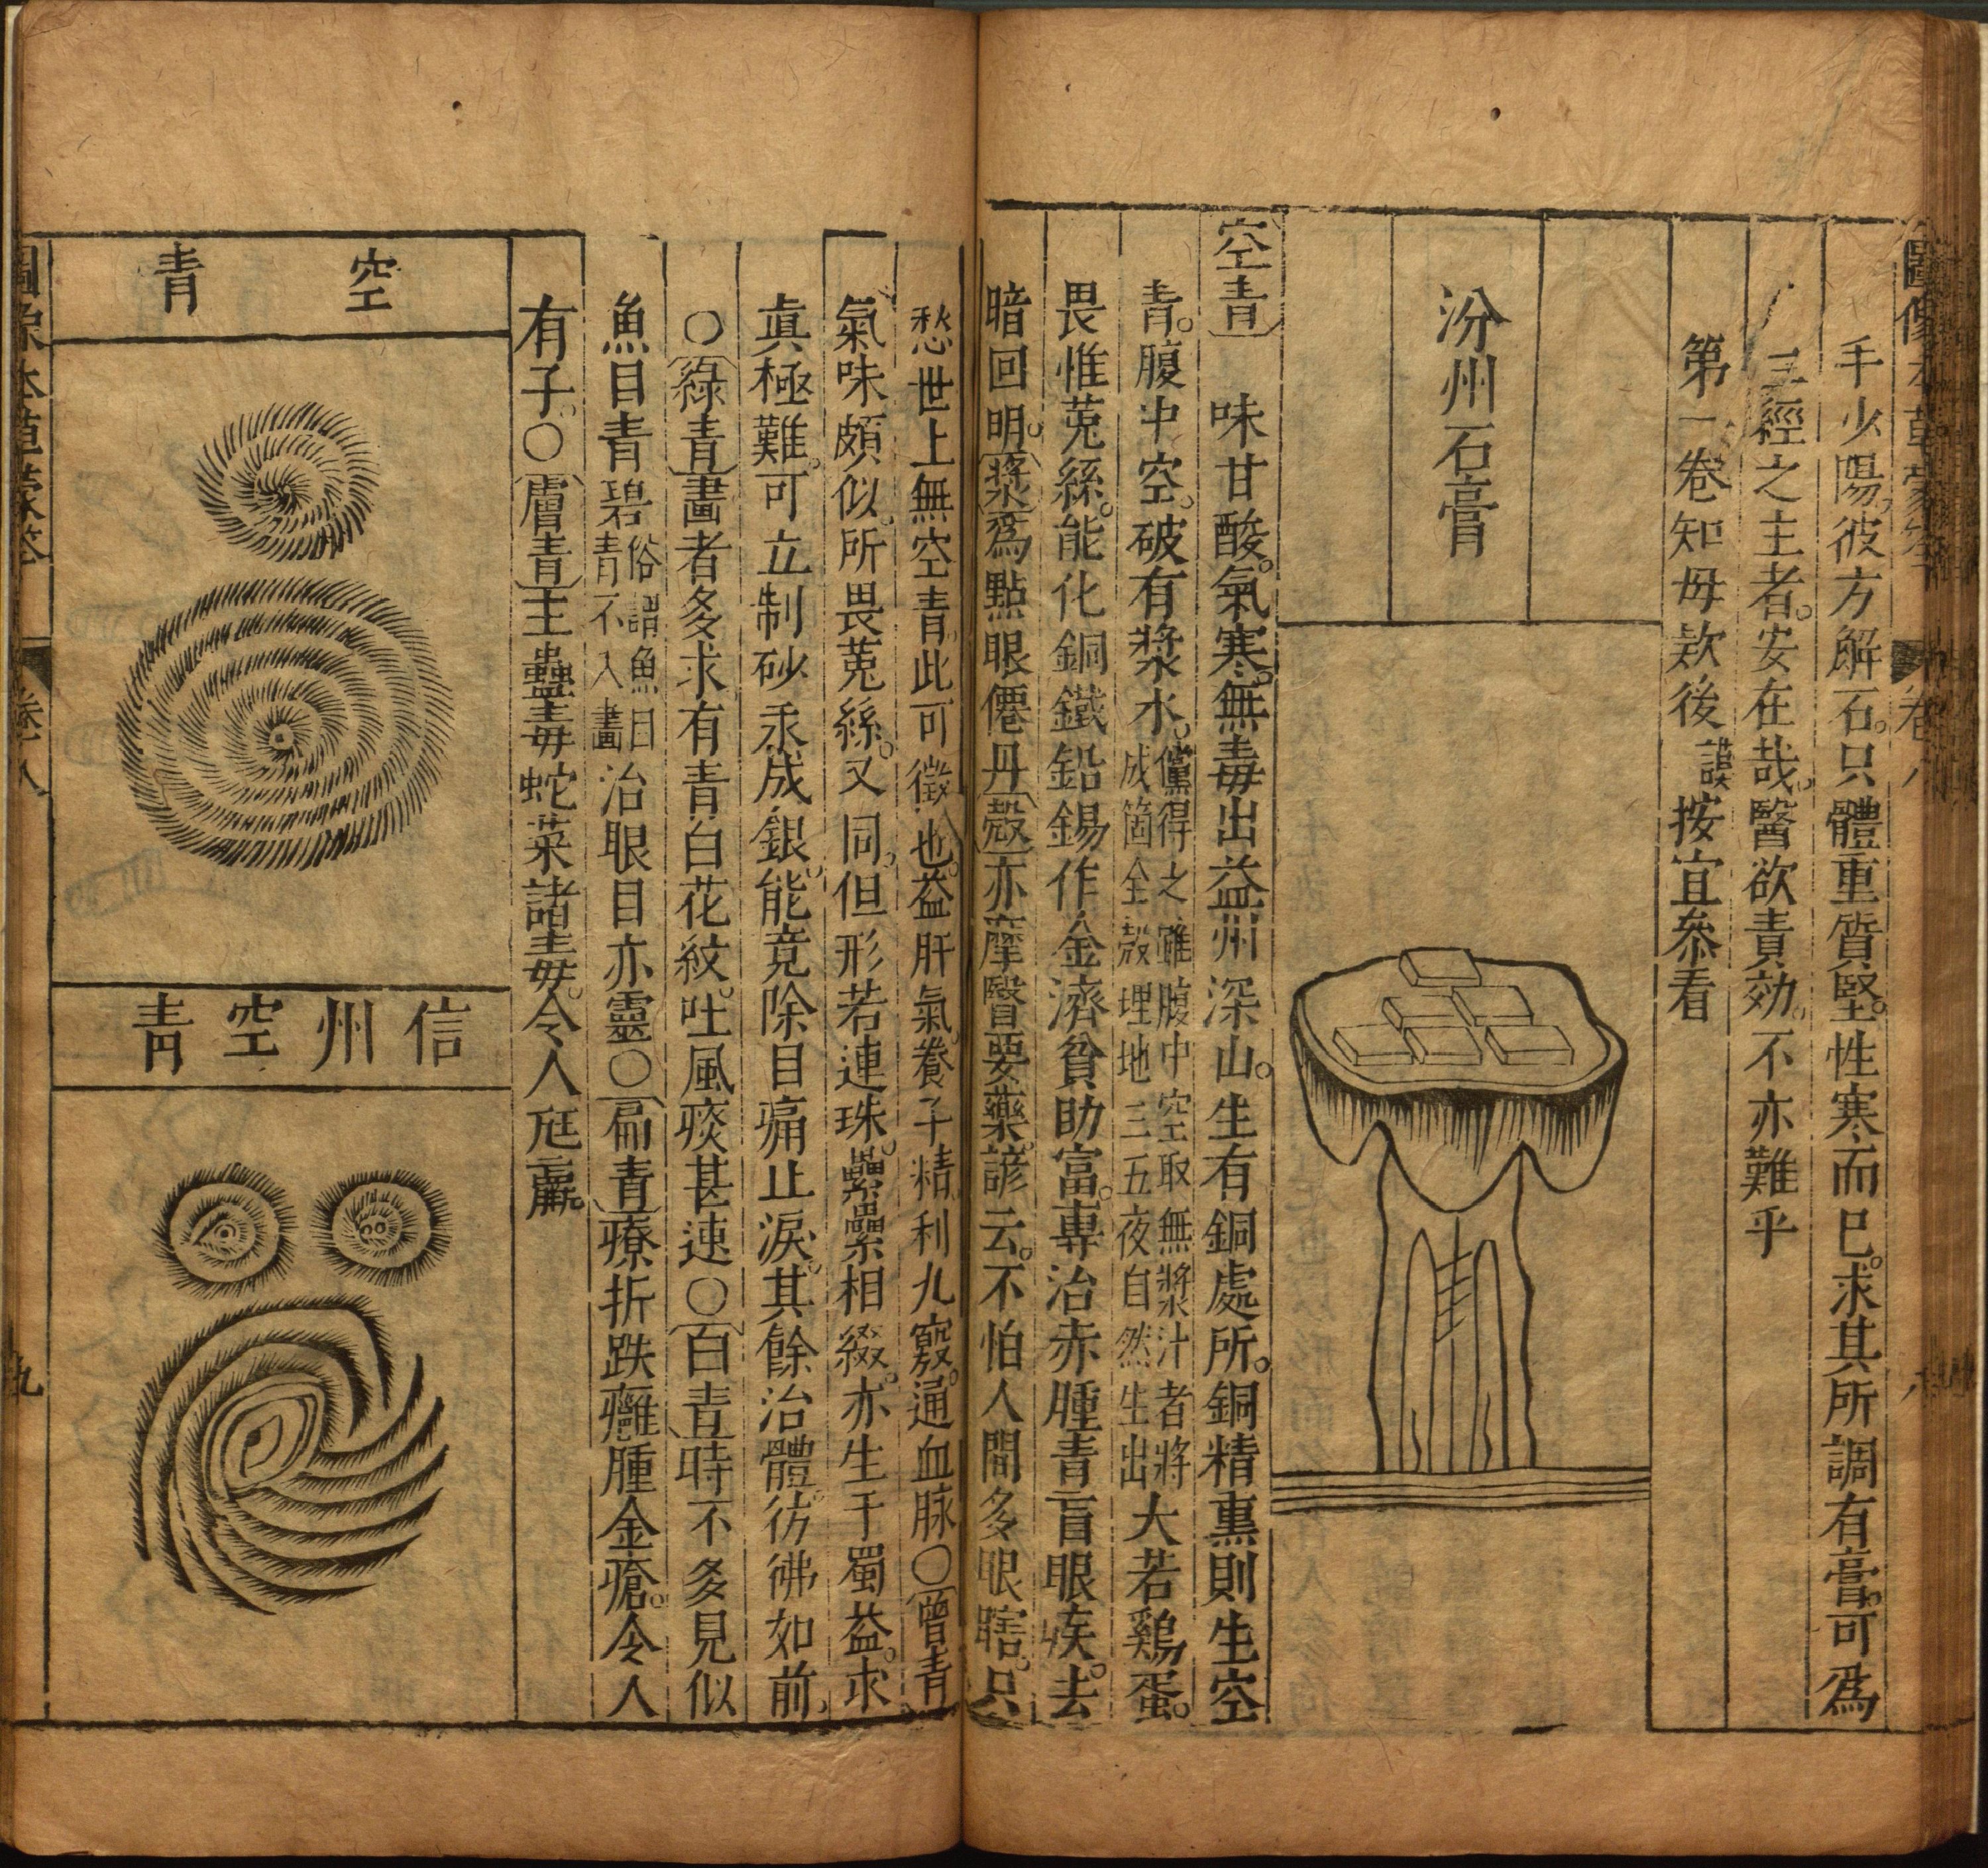 圖像本草蒙筌
卷八
八
手少陽彼方解石只體重質堅性寒而已求其所謂有膏可為
三經之主者安在哉醫欲責効不亦難乎
第一卷知母款後謨按宜叅看
汾州石膏
空青 味甘酸氣寒無毒出益州深山生有銅處所銅精熏則生空
青腹中空破有漿水儻得之雖腹中空取無漿汁者將
成箇全殼埋地三五夜自然生出大若鷄蛋
畏惟菟絲能化銅鐵鉛錫作金濟貧助富專治赤腫青盲眼疾去
暗回明漿為點眼僊丹殼亦摩瞖要藥諺云不怕人間多眼瞎只
愁世上無空青此可徵也益肝氣養子精利九竅通血脉○曾青
氣味頗似所畏菟絲又同但形若連珠纍纍相綴亦生于蜀益求
眞極難可立制砂汞成銀能竟除目痛止淚其餘治體彷彿如前
○綠青畫者多求有青白花紋吐風痰甚速○白青時不多見似
魚目青碧俗謂魚目
青不入畫治眼目亦靈○扁青療折跌癰腫金瘡令人
有子○膚青主蠱毒蛇菜諸毒令人尫羸
空青
信州空青
圖像本草蒙筌
卷八
九